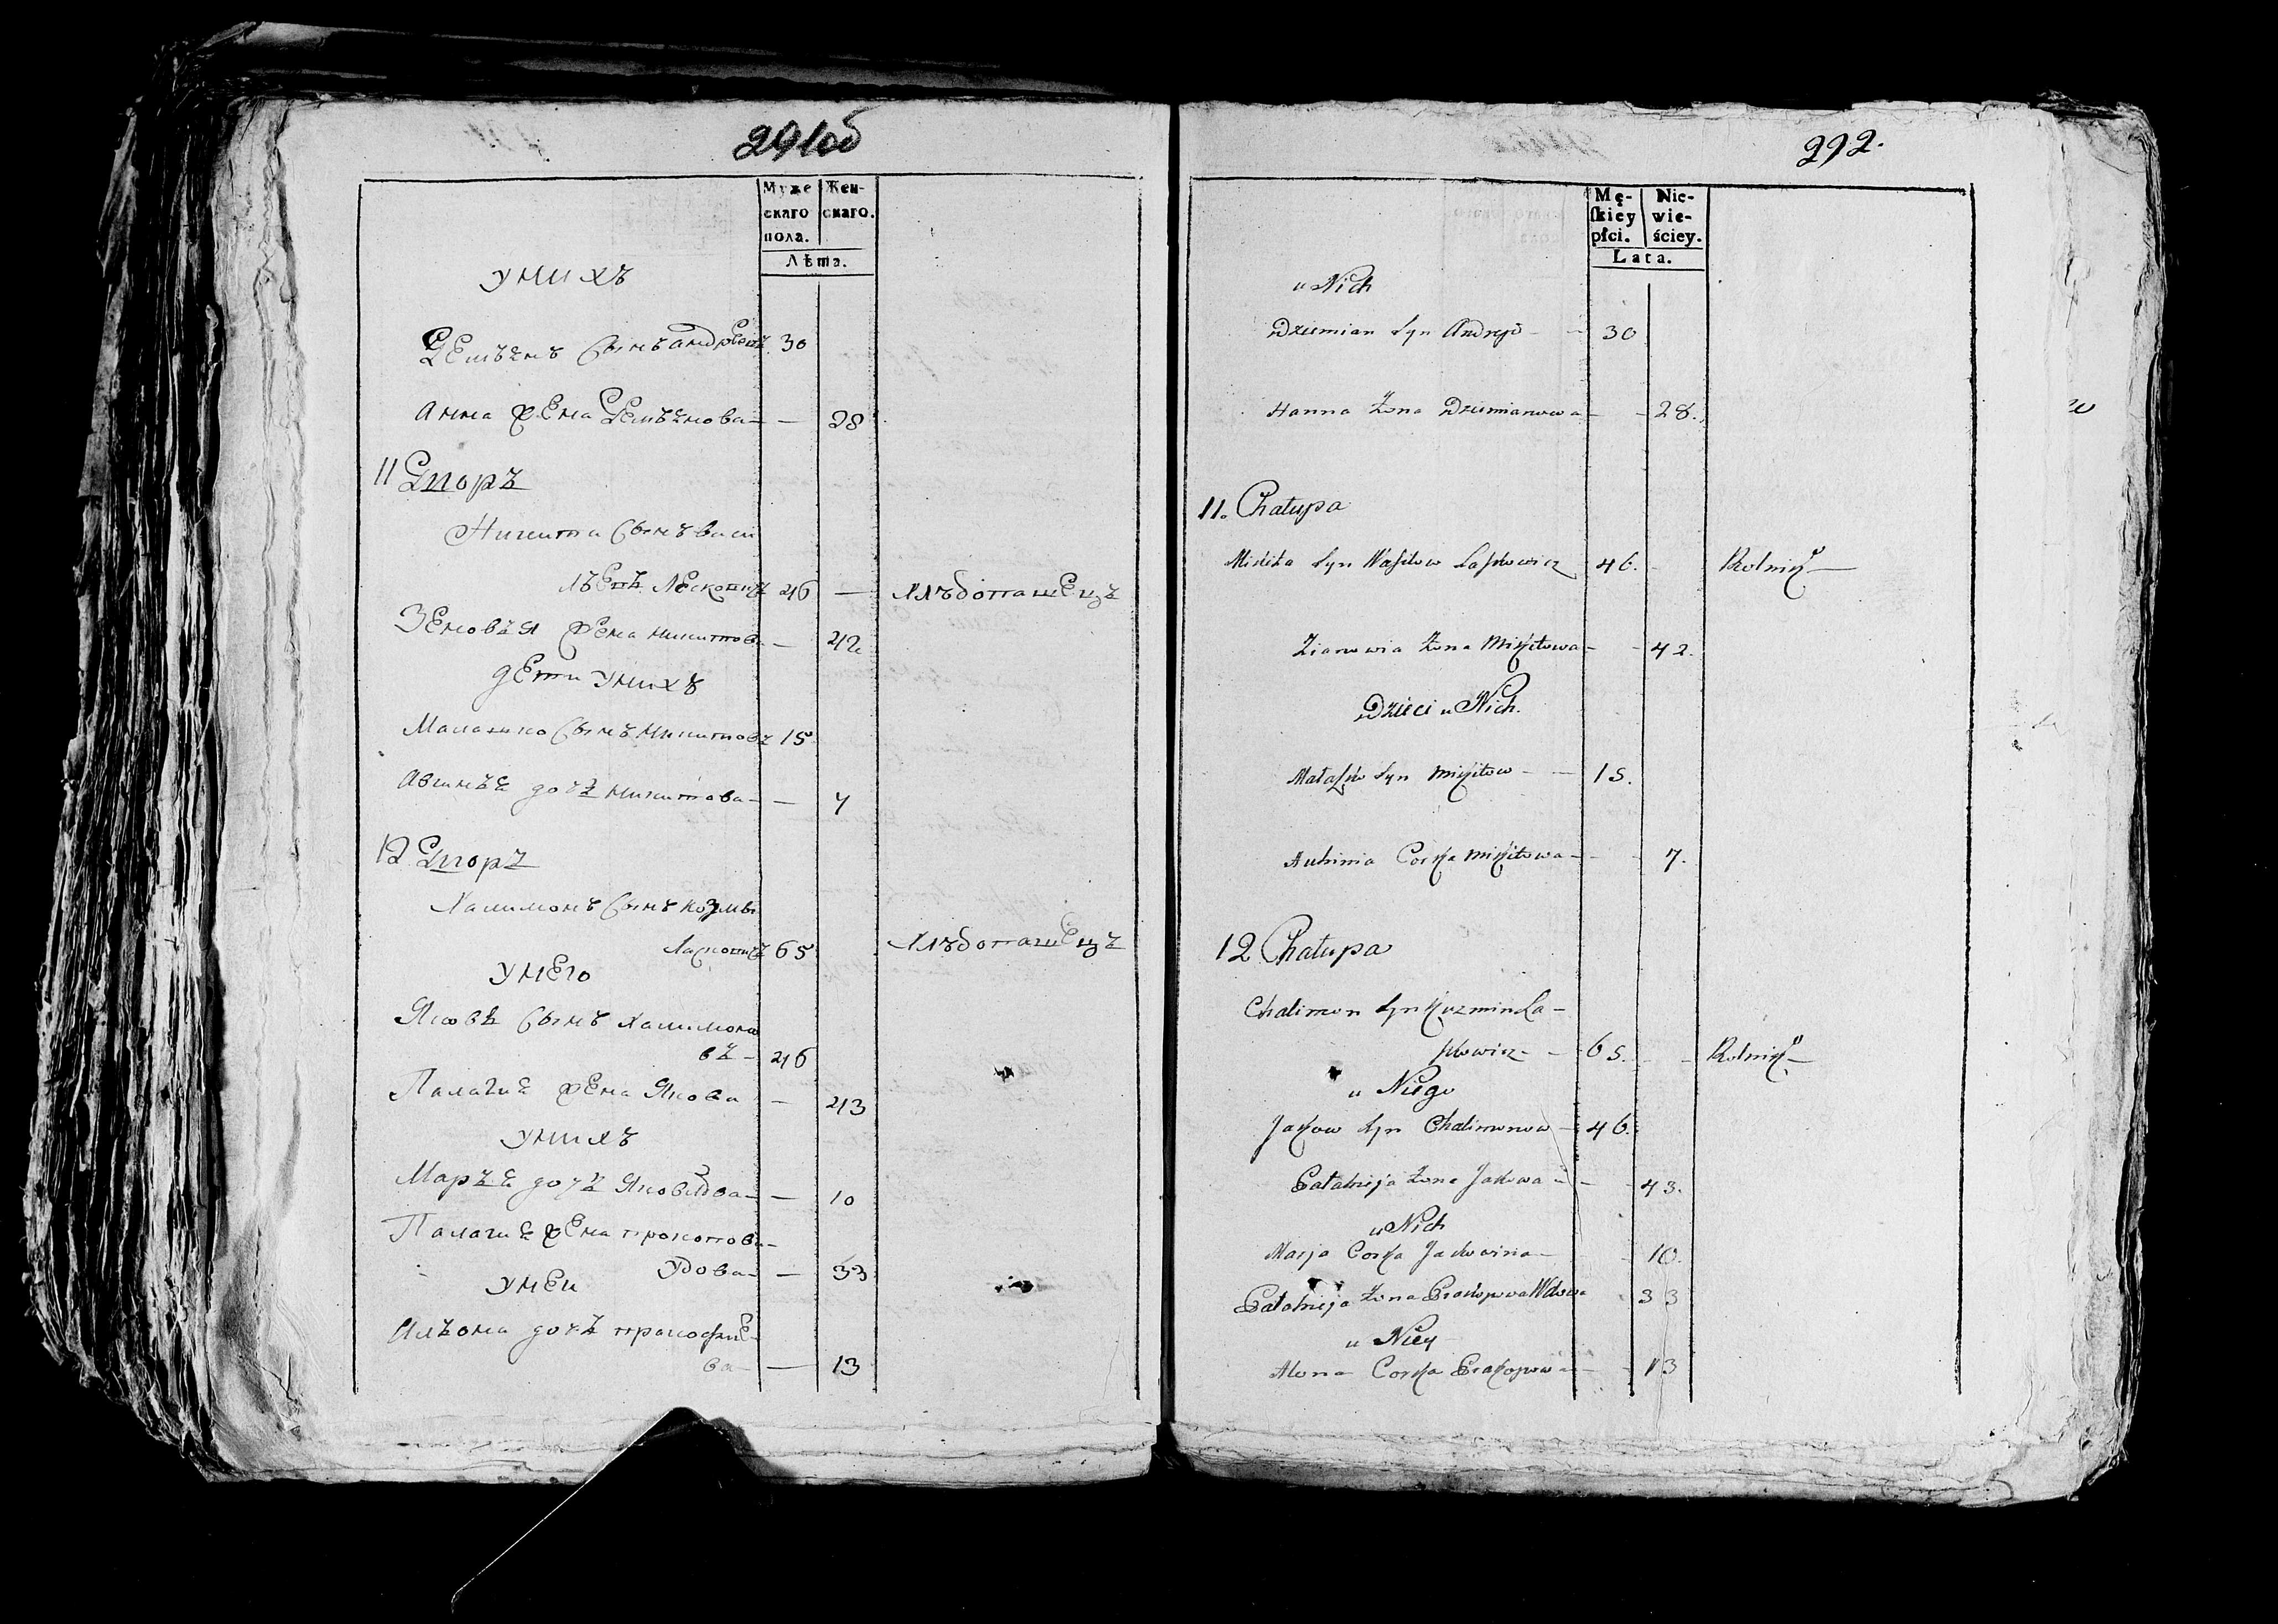 291об
Муже
скаго
пола.
Жен-
скаго.
Лѣта.
У нихъ
Демьянъ Сынъ андреевъ 30
Анна жена Демьянова — 28
11 Двор
Никита Сынъ васи
льевъ Ласкович 46 — Хлѣбопашецъ
Зеновья жена никитова — 42
дети У нихъ
Малашко Сынъ никитовъ 15
Авгинья дочь никитова — 7
12 Двор
Халимонъ Сынъ козмы
Ласкович 65 Хлѣбопашецъ
У него
Яковъ Сынъ халимоно
въ — 46
Палагия жена Якова — 43
У нихъ
Марья дочь Яковлева — 10
Палагия жена прокопова
Удова — 33
У неи
Алѣона дочь прокофие
ва — 13
292.
Mę-
skiey
płci.
Nie-
wie-
ściey.
Lata.
u Nich
Dziemian Syn Andrejo - - 30
Hanna Żona Dziemianowa - - 28.
11. Chałupa
Mikita Syn Wasilow Laskowicz 46. Rolnik —
Zianowia Żona Mikitowa - - 42.
Dzieci u Nich.
Małaszko Syn Mikitow - - 15.
Auhinia Corka Mikitowa - - 7.
12 Chałupa
Chalimon Syn Kuzmin La-
skowicz - - 65. - Rolnik —
u Niego
Jakow Syn Chalimonow - 46.
Pałahieja Żona Jakowa - - 43.
u Nich
Marja Corka Jakowina - 10.
Pałahieja Żona Prakopowa Wdowa - 33
u Niey
Alona Corka Prakopowa - - 13